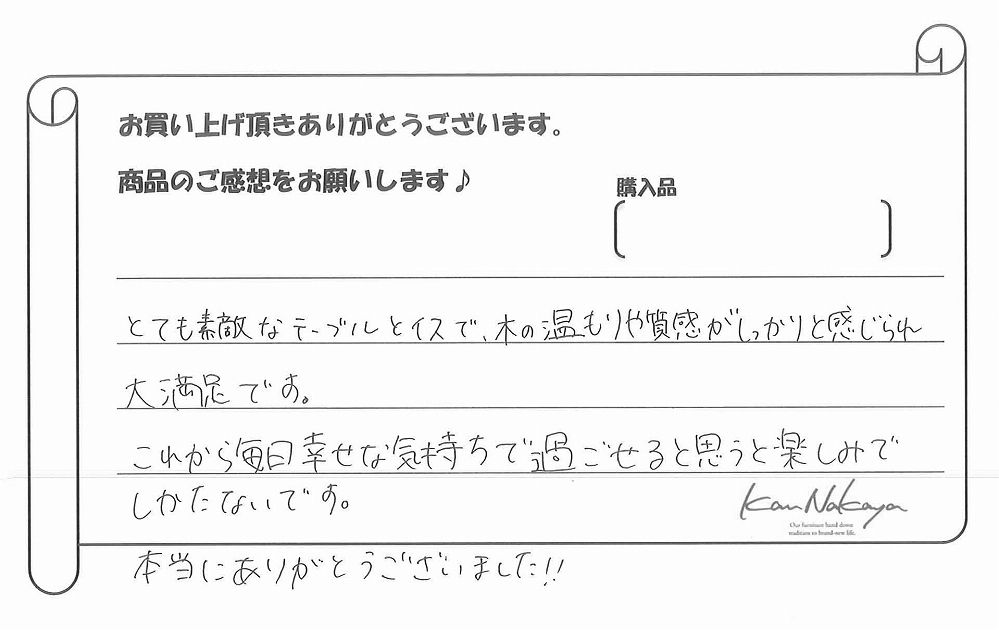 お買い上げ頂きありがとうございます。
商品のご感想をお願いします♪
購入品
とても素敵なテーブルとイスで、木の温もりや質感がしっかりと感じられ
大満足です。
これから毎日幸せな気持ちで過ごせると思うと楽しみで
しかたないです。
Kan Nakaya
Our furniture hand down
tradition to brand-new life.
本当にありがとうございました!!